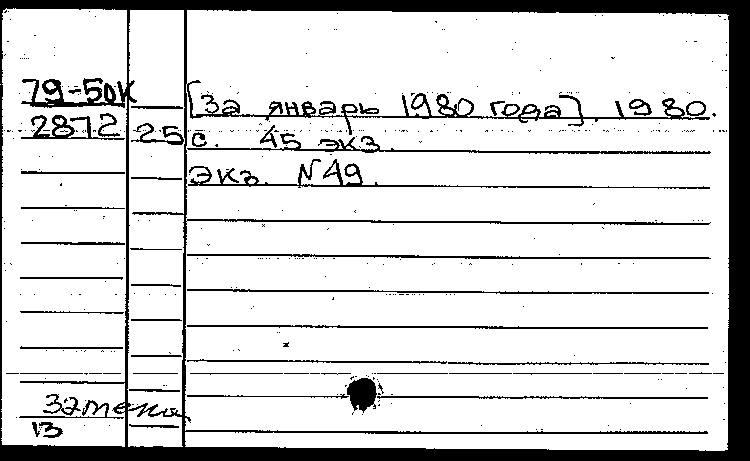 79-50к [За январь 1980 года]. 1980.
2872 25 с. 45 экз.
Экз. N49.
Замена
13